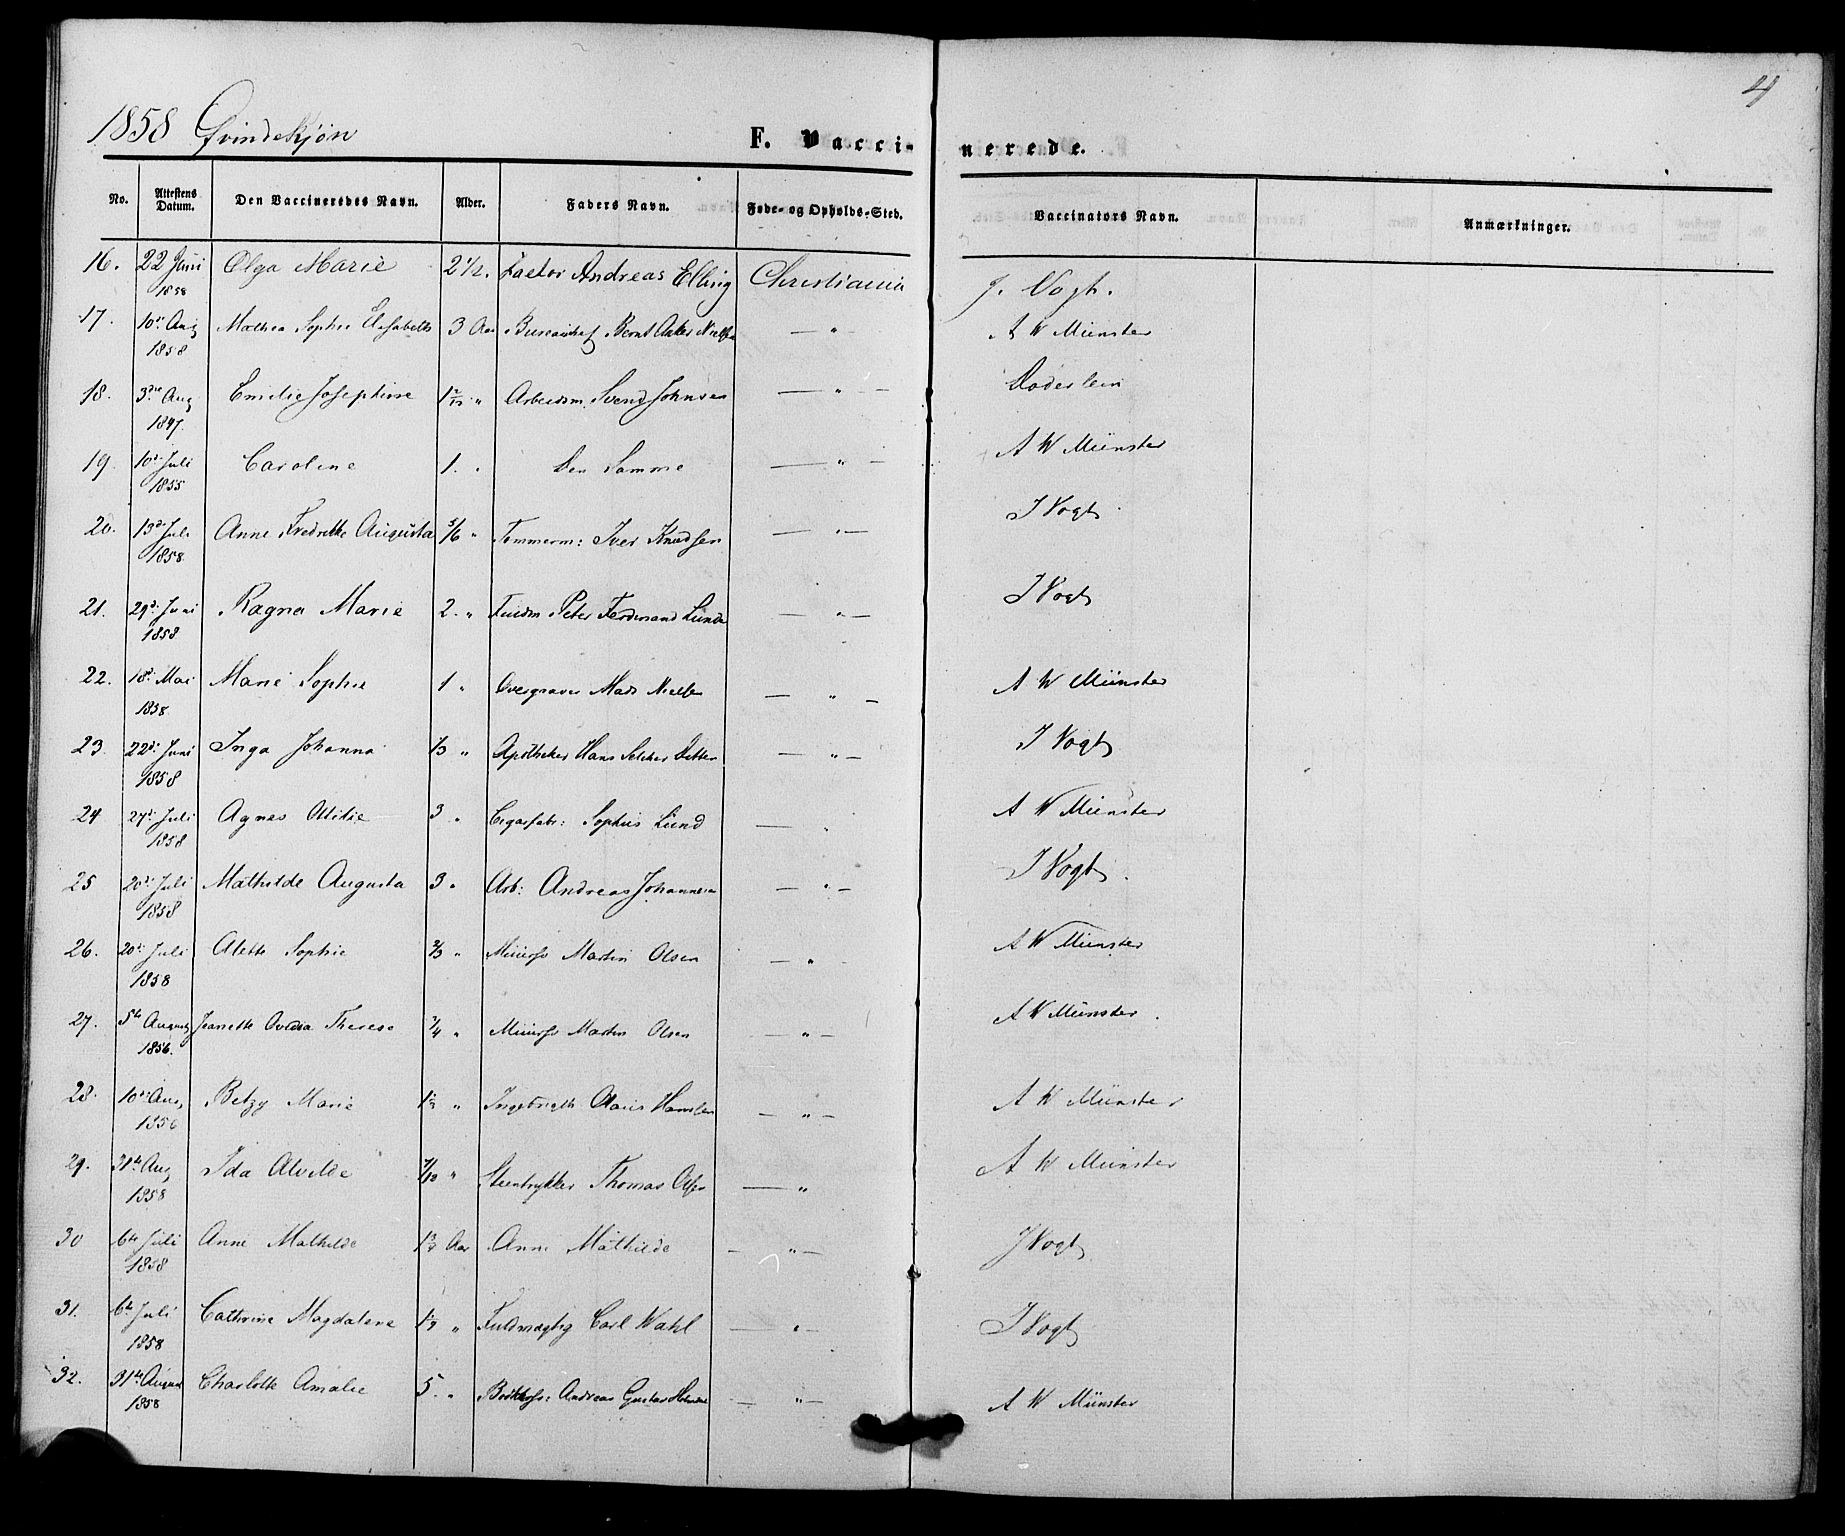 4
1858 Qvindekjøn
F. Vaccinerede.
No. Attestens Datum. Den Vaccineredes Navn. Alder. Faders Navn. Føde- og Opholds-Sted. Vaccinators Navn. Anmærkninger.
16. 22 Juni 1858 Olga Marie 2 1/2. Factor Andreas Elling Christiania J. Vogt.
17. 10de Aug 1858 Mathea Sophie Elisabeth 3 Aar Bernt Anker — " A W Münster
18. 3die Aug 1847. Emilie Josephine " Arbeidsm. Svend Johnsen — " —
19. 10de Juli 1855 Caroline 1. " Den Samme — " — A W Münster
20. 13de Juli 1858. Anne Fredrikke Augusta 5/6 " Tømmerm: Iver Knudsen — " — J Vogt
21. 29de Juni 1858 Ragna Marie 2. " Peter Ferdinand Lunde — " — J Vogt
22. 18de Mai 1858. Marie Sophie 1 " Mads Nielsen — " — A W Münster
23. 22de Juni 1858 Inga Johanna 1/3 " Apotheker Hans — " — J Vogt
24 27de Juli 1858 Agnes Otilie 3 " Cigarfabr: Sophus Lund — " A W Münster
25 20de Juli 1858 Mathilde Augusta 3 " Arb: Andreas Johannesen — " — J Vogt.
26. 20de Juli 1858 Alette Sophie 2/3 " Muursv Martin Olsen — " — A W Münster
27. 5te August 1856. Jeanette Ovedia Therese 3/4 " Muursv Martin Olsen — " — A W Münster.
28. 10de Aug 1856 Betzy Marie " Ingebrigth Olaus Hansen — " — A W Münster
29. 31te Aug 1858 Ida Alvilde 7/12 " Steentrykker Thomas Olsen — " A W Münster
30 6te Juli 1858 Anne Mathilde 1 3/4 Aar Anne Mathilde — " — J Vogt
31. 6te Juli 1858 Cathrine Magdalene " Fuldmægtig Carl Wahl — " — J Vogt
32. 31te August 1858 Charlotte Amalie 5. " Andreas Gustav — " — A W Münster